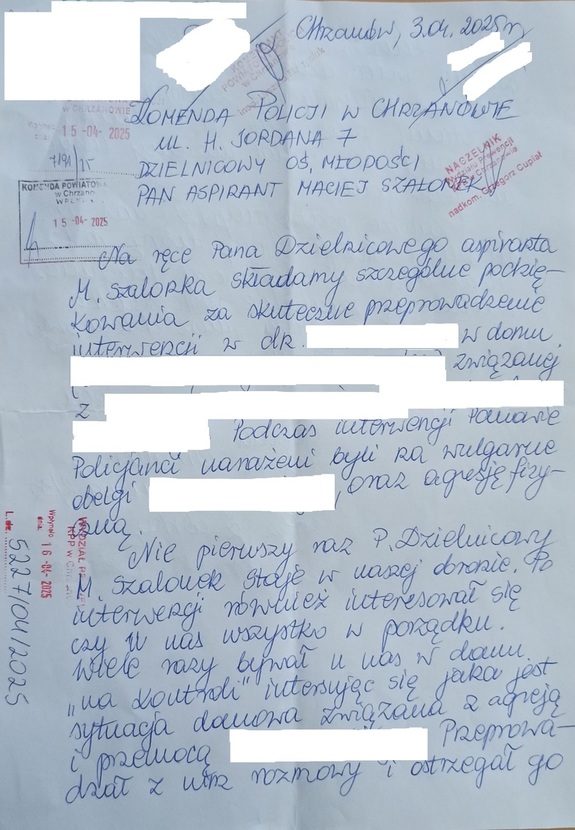 Chrzanów, 3.04.2025r
KOMENDA POLICJI W CHRZANOWIE
UL. H. JORDANA 7
DZIELNICOWY OŚ. MŁODOŚCI
PAN ASPIRANT MACIEJ SZALONEK
15-04-2025
7191/25
KOMENDA POWIATOWA
w Chrzanowie
15-04-2025
NACZELNIK
Wydziału Prewencji
nadkom. Grzegorz Cupiał
Na ręce Pana Dzielnicowego aspiranta
M. Szalonka składamy szczególne podzię-
kowania za skuteczne przeprowadzenie
interwencji w dn. w domu
związanej
z
Podczas interwencji Panowie
Policjanci narażeni byli na wulgarne
obelgi , oraz agresję fizy-
czną.
Nie pierwszy raz P. Dzielnicowy
M. Szalonek staje w naszej obronie. Po
interwencji również interesował się
czy u nas wszystko w porządku.
Wiele razy bywał u nas w domu
„na kontroli" intersując się jaka jest
sytuacja domowa związana z agresją
i przemocą Przeprowa-
dzał z nim rozmowy i ostrzegał go
Wpłynęło 16-04-2025
L.dz. 5227/04/2025